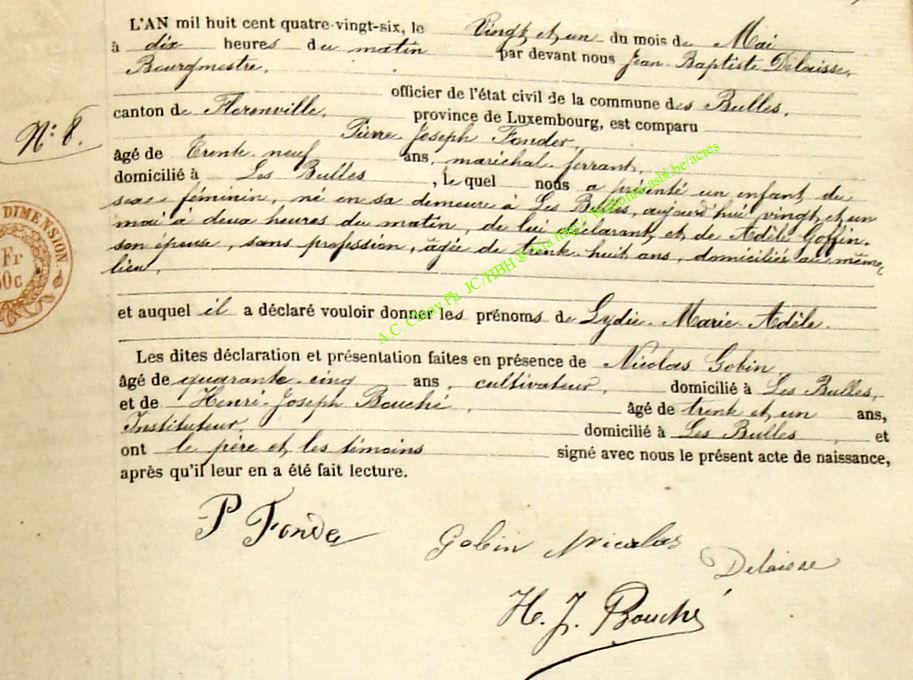 L'AN mil huit cent quatre-vingt-six, le Vingt et un du mois de Mai
à dix heures du matin par devant nous Jean-Baptiste Delaisse,
Bourgmestre,
officier de l'état civil de la commune des Bulles,
canton de Florenville, province de Luxembourg, est comparu
Pierre-Joseph Fonder,
N° 8.
âgé de Trente-neuf ans, maréchal-ferrant,
domicilié à Les Bulles, lequel nous a présenté un enfant du
sexe féminin, né en sa demeure à Les Bulles, aujourd'hui vingt et un
mai à deux heures du matin, de lui déclarant et de Adèle Goffin,
son épouse, sans profession, âgée de trente-huit ans, domiciliée au même
lieu,
et auquel il a déclaré vouloir donner les prénoms de Lydie-Marie-Adèle.
Les dites déclaration et présentation faites en présence de Nicolas Gobin
âgé de quarante-cinq ans, cultivateur, domicilié à Les Bulles,
et de Henri-Joseph Bouché, âgé de trente et un ans,
Instituteur, domicilié à Les Bulles, et
ont le père et les témoins signé avec nous le présent acte de naissance,
après qu'il leur en a été fait lecture.
P Fonder
Gobin Nicolas
Delaisse
H. J. Bouché
DIMENSION
Fr
0c
A.C. Chiny Ph. JC/BBH
.be/actes